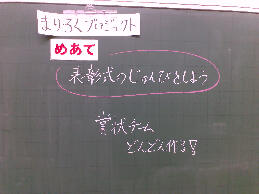 まりふくプロジェクト
めあて
表彰式のじゅんびをしよう
賞状チーム
どんどん作る!